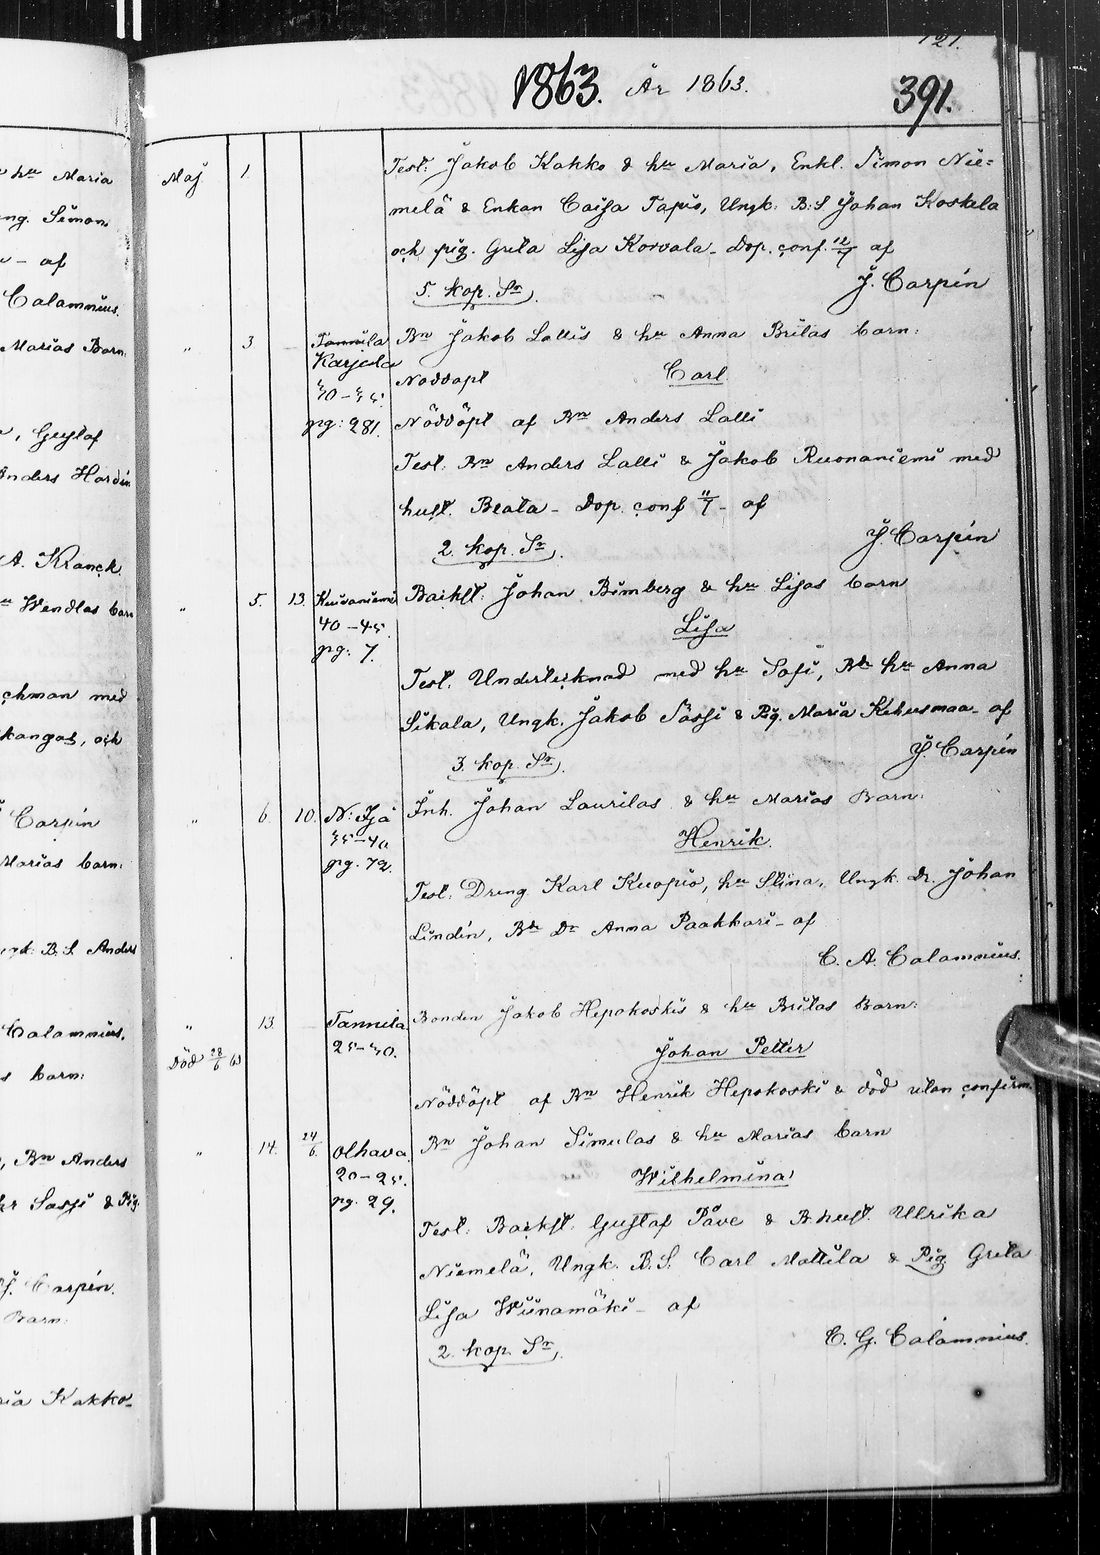 121.
1863. År 1863. 391.
Maj. 1. Test: Jakob Kakko & hu Maria, Enkl. Simon Nie=
melä & Enkan Caisa Tapio, Ungk: B.S Johan Koskela
och pig. Greta Lisa Korvala_ Dop. conf. 12/7 af
5. kop. Sr. J. Carpin
" 3 Tannila Bn Jakob Lallis & hu Anna Britas barn:
Karjala
Nöddöpt Carl
30-35.
pg: 281. Nöddöpt af Bn Anders Lalli
Test. Bn Anders Lalli & Jakob Ruonaniemi med
hust. Beata_ Dop. conf 11/7_ af
2. kop. Sr. J. Carpin
" 5. 13. Kuivaniemi Backst: Johan Bimberg & hu Lisas barn
40-45. Lisa
pg: 7.
Test: Undertecknad med hu Sofi, Bd hu Anna
Sikala, Ungk. Jakob Sassi & Pig. Maria Kehusmaa_ af
3. kop. Sr. J. Carpin
" 6. 10. N. Ijå Inh. Johan Laurilas & hu Marias Barn:
35-40 Henrik.
pg. 72.
Test: Dreng Karl Kuopio, hu Stina, Ungk. Dr. Johan
Lindin, Bd Dr Anna Paakkari_ af
C. A. Calamnius.
" 13. Tannila Bonden Jakob Hepokoskis & hu Britas Barn:
25-30. Johan Petter
Död 28/6 63
Nöddöpt af Bn Henrik Hepokoski & död utan confirm.
" 14. 24/6. Olhava. Bn Johan Simulas & hu Marias barn
20-25. Wilhelmina
pg. 29.
Test: Backst. Gustaf Påve & B. hust. Ulrika
Niemelä, Ungk. B.S. Carl Mattila & Pig. Greta
Lisa Wiinamäki_ af
2. kop. Sr. C. G. Calamnius.
hu Maria
ng. Simon
_ af
Calamnius.
Marias Barn:
, Gustaf
Anders Hardin
A. Kranck.
Wendlas barn
chman med
kangas, och
Carpin
Marias barn:
B.S. Anders
Calamnius.
s barn:
, Bn Anders
Sassi & Pig.
J. Carpin.
Barn:
ria Kakko_